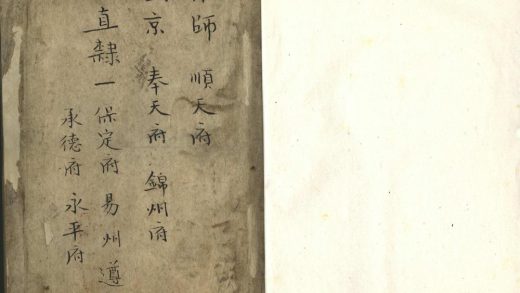 師 順天府
京 奉天府 錦州府
直隸一 保定府 易州 遵
承德府 永平府